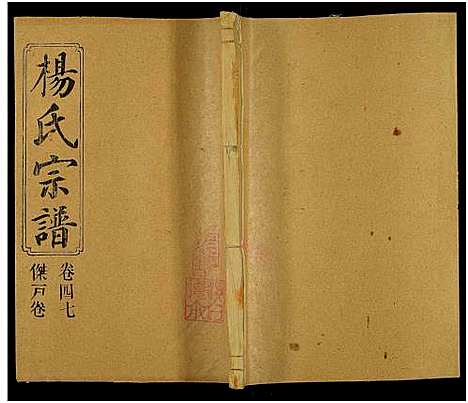 楊氏宗譜
卷四七
傑戶卷